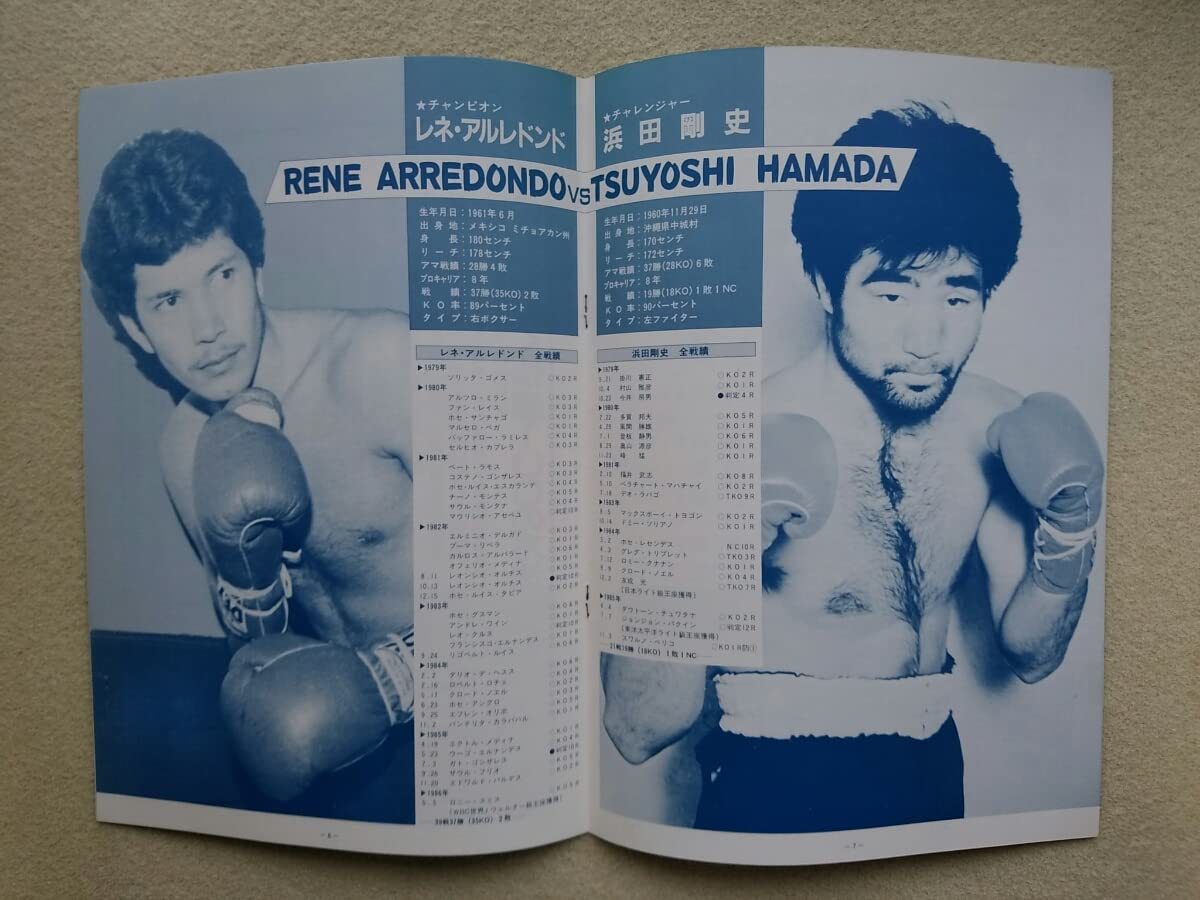 ★チャンピオン
レネ・アルレドンド
★チャレンジャー
浜田剛史
RENE ARREDONDO VS TSUYOSHI HAMADA
生年月日：1961年6月
出身地：メキシコ ミチョアカン州
身長：180センチ
リーチ：178センチ
アマ戦績：28勝4敗
プロキャリア：8年
戦績：37勝(35KO)2敗
KO率：89パーセント
タイプ：右ボクサー
生年月日：1960年11月29日
出身地：沖縄県中城村
身長：170センチ
リーチ：172センチ
アマ戦績：37勝(28KO)6敗
プロキャリア：8年
戦績：19勝(18KO)1敗1NC
KO率：90パーセント
タイプ：左ファイター
レネ・アルレドンド 全戦績
▶1979年
ソリッタ・ゴメス ○KO2R
▶1980年
アルツロ・ミラン ○KO3R
ファン・レイス ○KO3R
ホセ・サンチャゴ ○KO1R
マルセロ・ベガ ○KO1R
バッファロー・ラミレス ○KO4R
セルヒオ・カブレラ ○KO3R
▶1981年
ペート・ラモス ○KO3R
コステノ・ゴンザレス ○KO3R
ホセ・ルイス・エスカランテ ○KO4R
チーノ・モンテス ○KO5R
サウル・モンタナ ○KO4R
マウリシオ・アセベユ ○判定10R
▶1982年
エルミニオ・デルガド ○KO3R
プーマ・リベラ
カルロス・アルバラード
オフェリオ・メディナ ○KO5R
8.11 レオンシオ・オルチス ●判定10R
10.13 レオンシオ・オルチス
12.15 ホセ・ルイス・タピア
▶1983年
ホセ・グスマン
アンドレ・ワイン ○判定10R
レオ・クルス
フランシスコ・エルナンデス
9.24 リゴベルト・ルイス
▶1984年
2.2 ダリオ・デ・ヘスス
2.16 ロベルト・ロチェ
5.17 クロード・ノエル
6.23 ホセ・アングロ
9.25 エフレン・オリボ
11.2 バンテリタ・カラバハル
▶1985年
4.19 ヘクトル・メディナ
5.23 ウーゴ・エルナンデス ●判定10R
7.3 ガト・ゴンザレス
9.26 サウル・フリオ
11.20 エドワルド・バルデス
▶1986年
5.5 ロニー・スミス ○KO5R
(WBC世界J.ウェルター級王座獲得)
39戦37勝(35KO)2敗
－6－
浜田剛史 全戦績
▶1979年
5.21 掛川 憲正 ○KO2R
10.4 村山 雅彦 ○KO1R
10.23 今井 房男 ●判定4R
▶1980年
2.22 多賀 邦夫 ○KO5R
4.29 風間 ○KO1R
7.1 曾根 静男 ○KO6R
8.29 畠山 源彦 ○KO1R
11.23 ○KO1R
▶1981年
2.10 福井 武志 ○KO8R
5.10 ベラチャート・マハチャイ ○KO2R
7.18 デオ・ラバゴ ○TKO9R
▶1983年
8.5 マックスボーイ・トヨゴン ○KO2R
10.14 ドミー・ソリアノ ○KO1R
▶1984年
2.2 ホセ・レセンデス NC10R
4.3 グレグ・トリプレット ○TKO3R
7.12 ロミー・クナナン ○KO1R
9.9 クロード・ノエル ○KO4R
12.2 友成 光 ○TKO7R
(日本ライト級王座獲得)
▶1985年
4.4 ダウトーン・チュワタナ ○KO2R
7 ジョンジョン・パクイン ○判定12R
(東洋太平洋ライト級王座獲得)
スワルノ・ペリコ ○KO1R防①
21戦19勝(18KO)1敗1NC
－7－